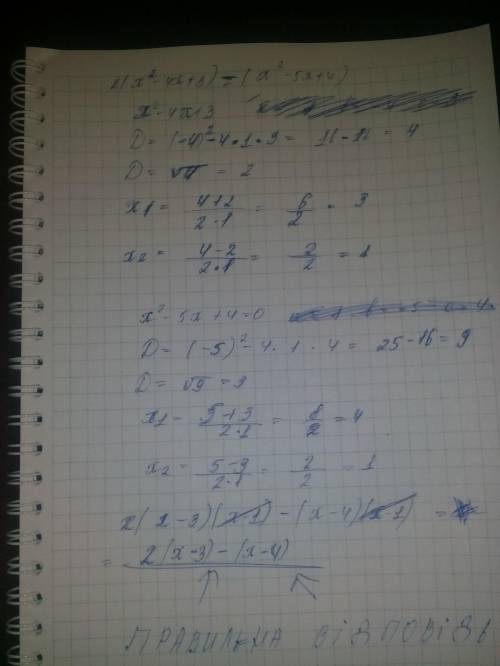 2(x²-4x+3)-(x²-5x+4)
x²-4x+3
D= (-4)²-4·1·3= 16-12= 4
D= √4 = 2
x1= 4+2/2·1 = 6/2 = 3
x2= 4-2/2·1 = 2/2 = 1
x²-5x+4=0
D= (-5)²-4·1·4= 25-16=9
D= √9 =3
x1= 5+3/2·1 = 8/2 =4
x2= 5-3/2·1 = 2/2 =1
2(x-3)(x-1)-(x-4)(x-1) =
= 2(x-3)-(x-4)
ПРАВИЛЬНА ВІДПОВІДЬ